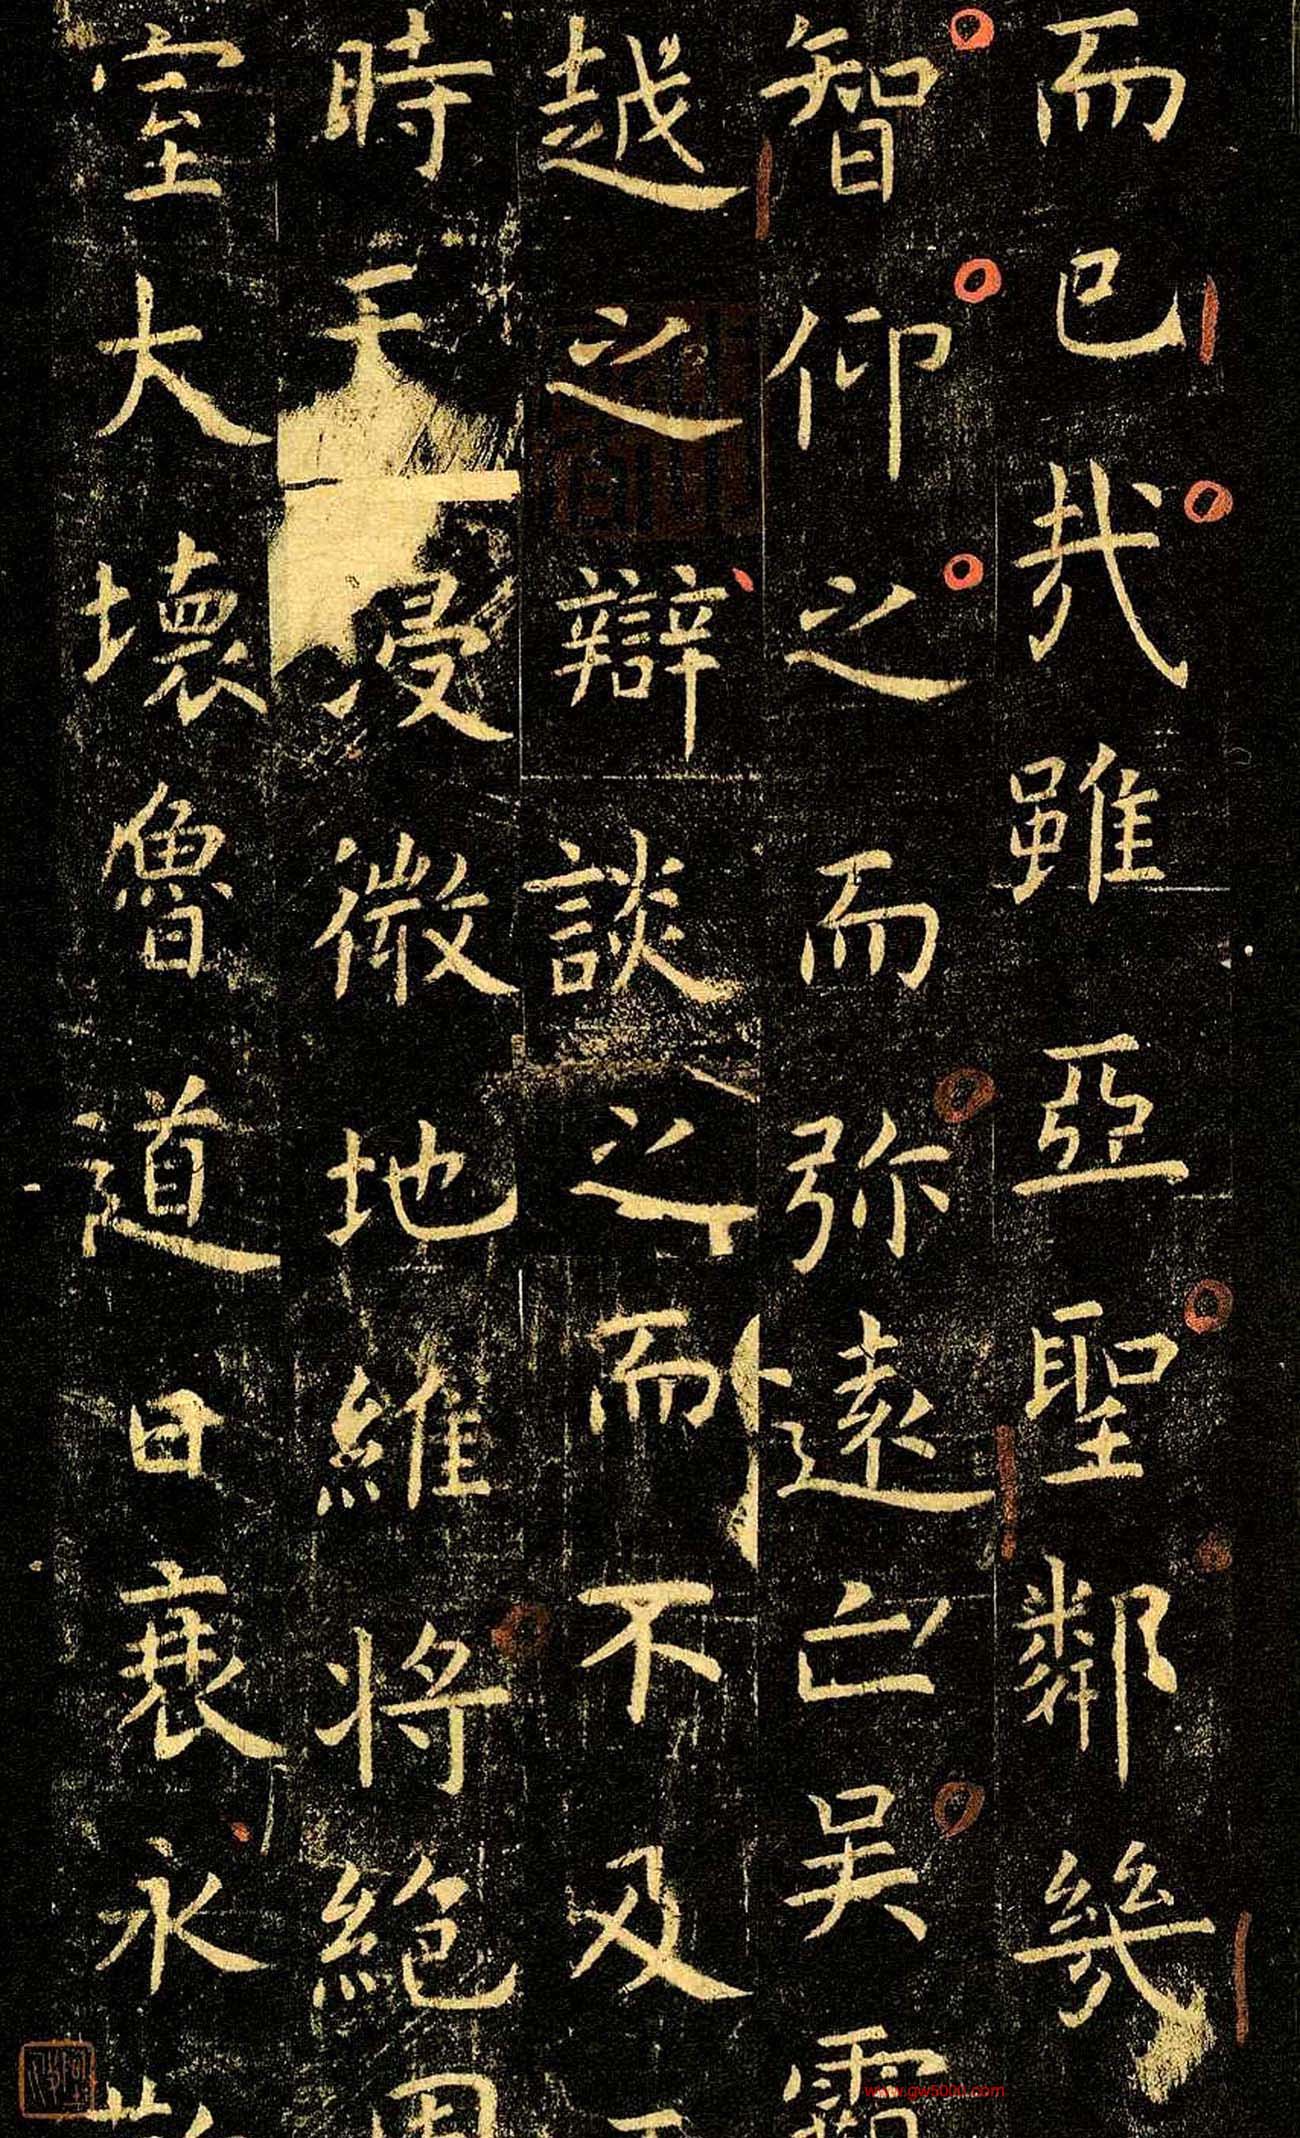 而已哉雖亞聖鄰幾
智仰之而弥遠亡吴霸
越之辯談之而不及
時天浸微地維將絕周
室大壞魯道日衰永
www.gw5000.com